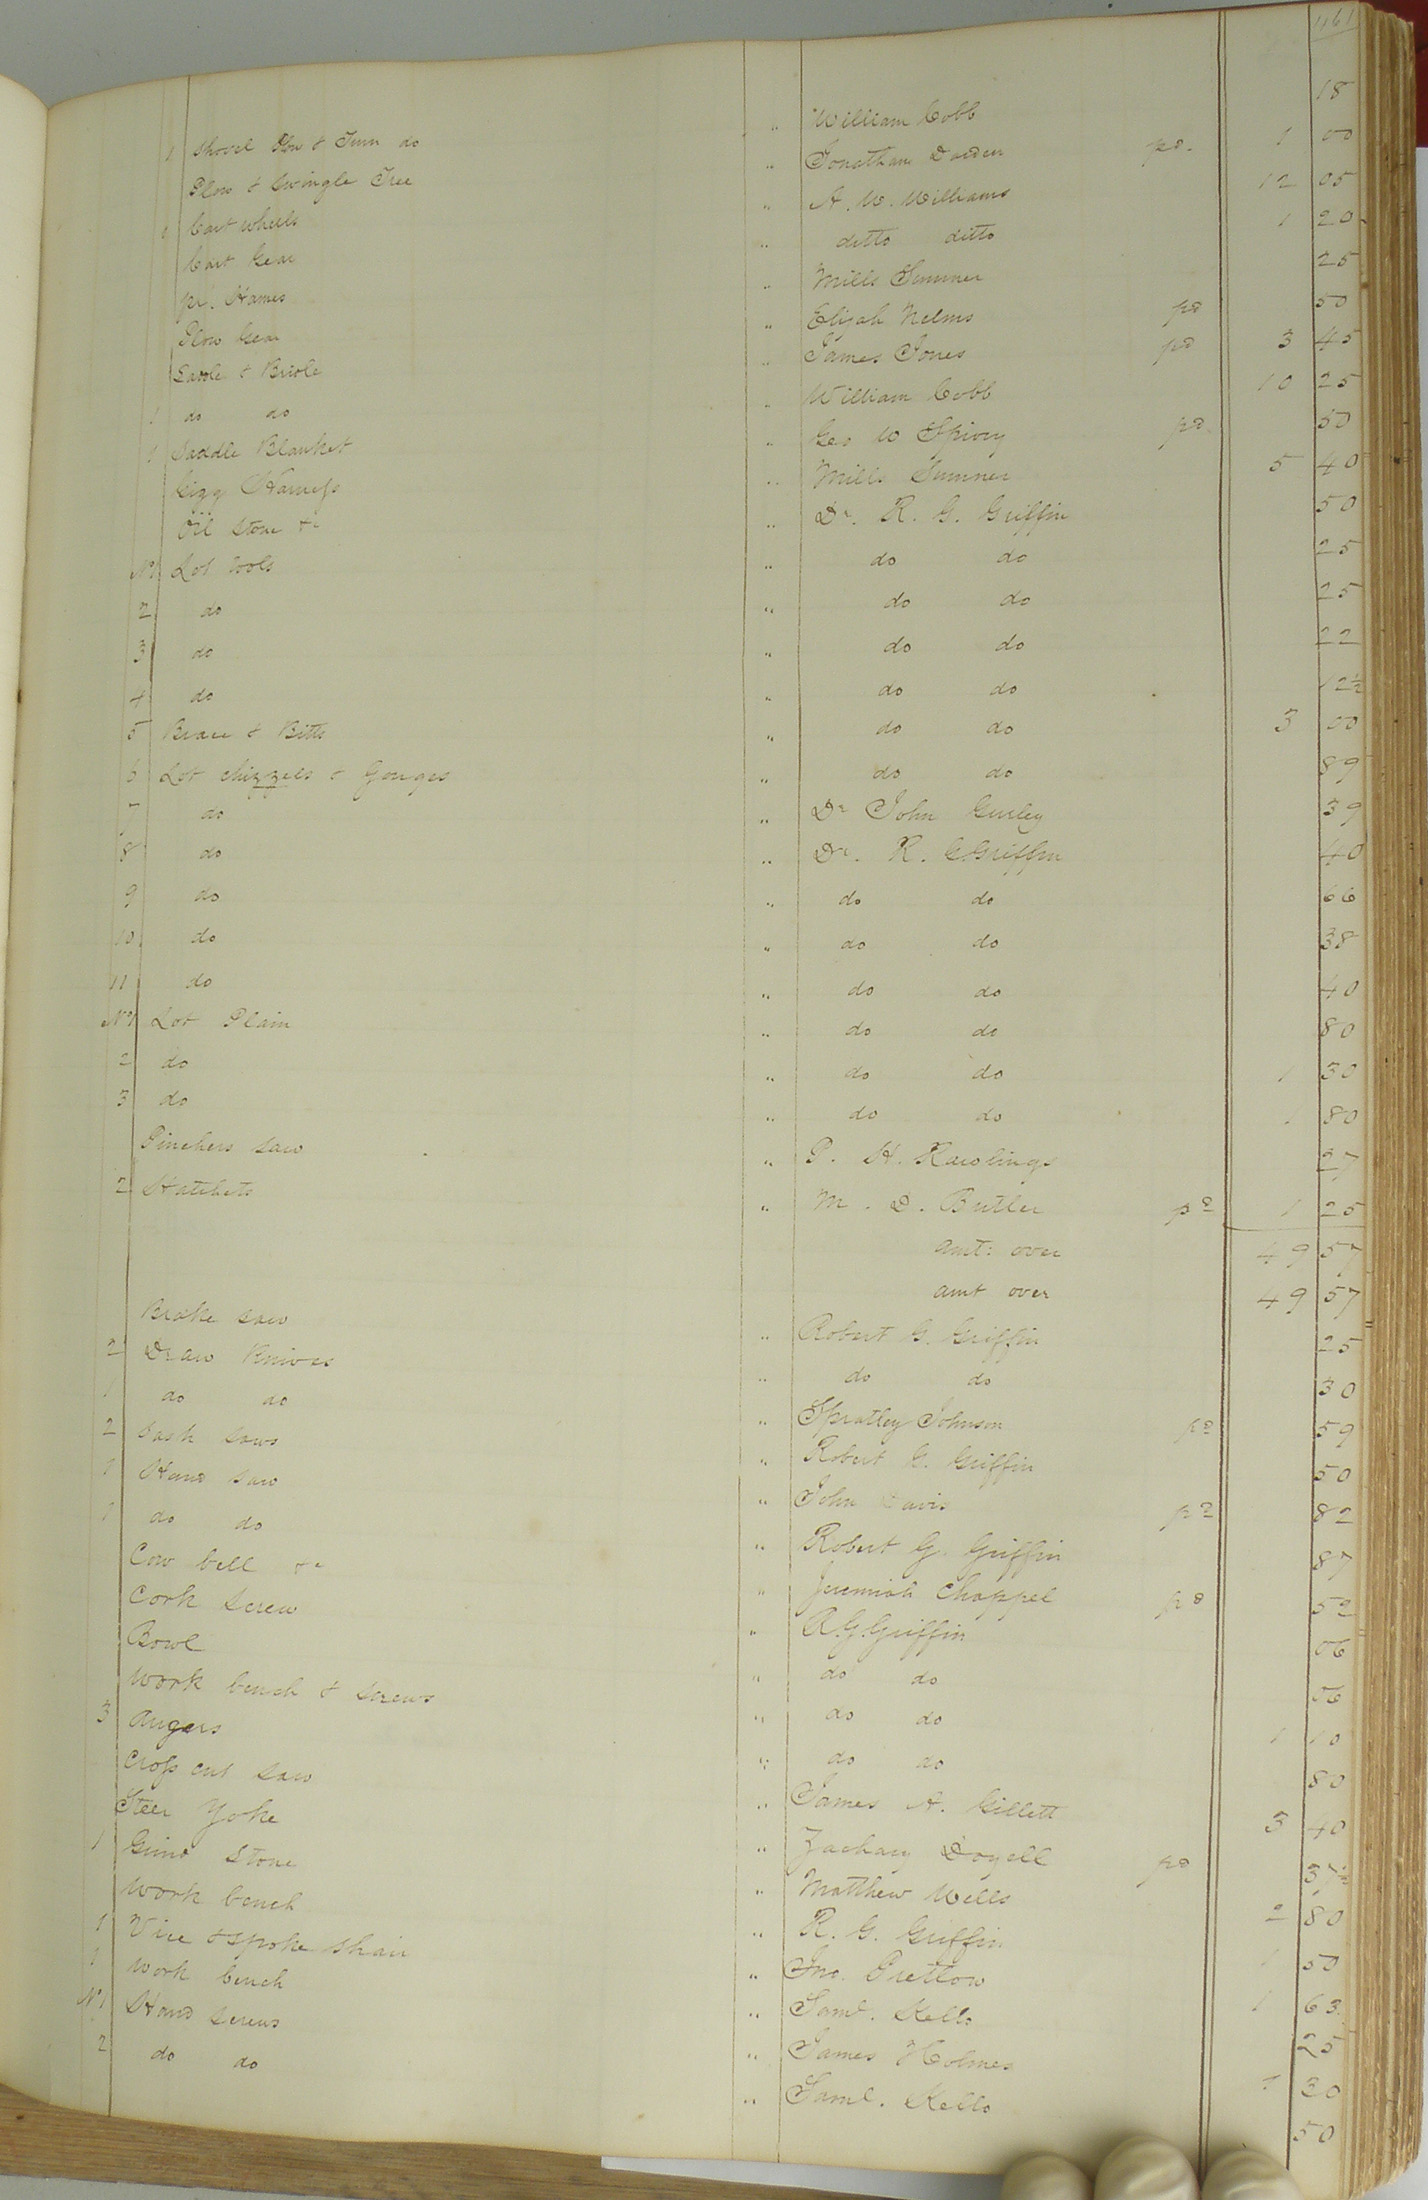 461
1 Shovel Plow & Turn do " William Cobb 18
Plow & Swingle Tree " Jonathan Darden pd. 1 00
1 Cart wheels " A. W. Williams 12 05
Cart Gear " ditto ditto 1 20
pr. Hames " Mills Sumner 25
Plow Gear " Elijah Nelms pd 50
Saddle & Bridle " James Jones pd 3 45
1 do do " William Cobb 10 25
1 Saddle Blanket " Geo W Spivey pd. 50
Gigg Harness " Mills Sumner 5 40
Oil Stone &c " Dr. R. G. Griffin 50
No 1 Lot tools " do do 25
2 do " do do 25
3 do " do do 22
4 do " do do 12½
5 Brace & Bitts " do do 3 00
6 Lot chizzels & Gouges " do do 89
7 do " Dr John Gurley 39
8 do " Dr. R. G Griffin 40
9 do " do do 66
10 do " do do 38
11 do " do do 40
No 1 Lot Plain " do do 80
2 do " do do 1 30
3 do " do do 80
Pinchers saw " P. H. Rawlings 27
2 Hatchets " M. D. Butler pd 1 25
amt: over 49 57
amt over 49 57
Brake saw " Robert G. Griffin 25
2 Draw Knives " do do 30
1 do do " Spratley Johnson pd 59
2 Sash saws " Robert G. Griffin 50
1 Hand saw " John Davis pd 82
1 do do " Robert G. Griffin 87
Cow bell &c " Jeremiah Chappel pd 52
Cork Screw " R.G. Griffin 06
Bowl " do do 56
Work bench & screws " do do 1 10
3 Augers " do do 80
Cross cut saw " James A. Gillett 3 40
Steer Yoke " Zachary Doyell pd 37½
1 Grind Stone " Matthew Wills 2 80
Work bench " R. G. Griffin 1 50
1 Vice & spoke shave " Jno. Pretlow 1 63
1 Work bench " Saml. Kello 25
No 1 Hand screws " James Holmes 1 30
2 do do " Saml. Kello 50